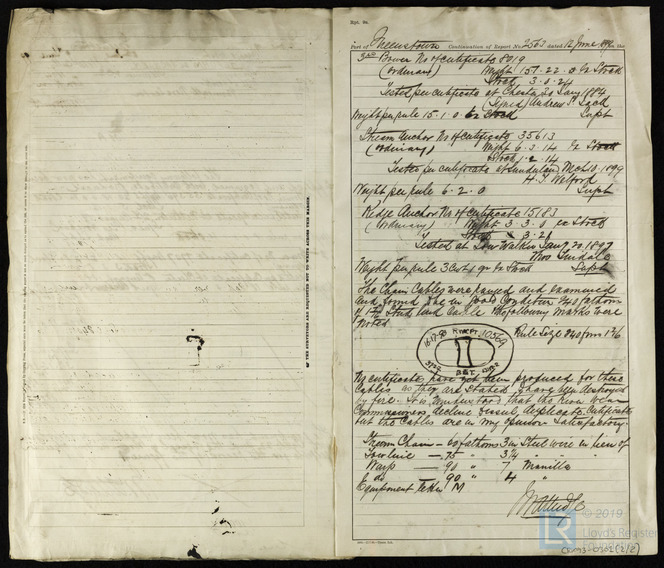 Rpt. 9a.
Port of Queenstown Continuation of Report No. 2563 dated 12 June 1899 on the
3rd Bower No of certificate 8019
(ordinary) Weight 15.1.22.0 Ex Stock
Stock 3.0.24
Tested per certificate at Chester 20 Jany 1884
(Signed) Andrew S. Lack
Weight per rule 15.1.0 Ex Stock Supt
Stream Anchor No of certificate 35613
(ordinary) Weight 6.3.14 Ex Stock
Stock 1.2.14
Tested per certificate at Sunderland, Mch 10. 1899
H. J. Welford
Weight per rule 6.2.0 Supt
Kedge Anchor No of certificate 15183
(ordinary) Weight 3.3.0 ex Stock
Stock 3.21
Tested at Low Walker Jany 20. 1897
Thos Tindale
Weight per rule 3 Cwt 1 qr Ex Stock Supt
The Chain Cables were ranged and examined
and found in Good Condition 240 fathoms
of Stud link Cable the following marks were
noted
Rule Size 240 fms 1 11/16
No certificates have yet been produced for these
Cables as they are stated to have been destroyed
by fire. It is understood that the River Wear
Commissioners decline to issue duplicate Certificates
but the Cables are in my opinion Satisfactory.
Stream Chain — 60 fathoms 3 in Steel wire in lieu of
Towline — 75 " 3 1/4 " "
Warp — 90 " 7 Manilla
do 90 " 4 "
Equipment letter M
OF THE SURVEYORS ARE REQUESTED NOT TO WRITE ACROSS THIS MARGIN.
© 2019
Lloyd's Register
Foundation